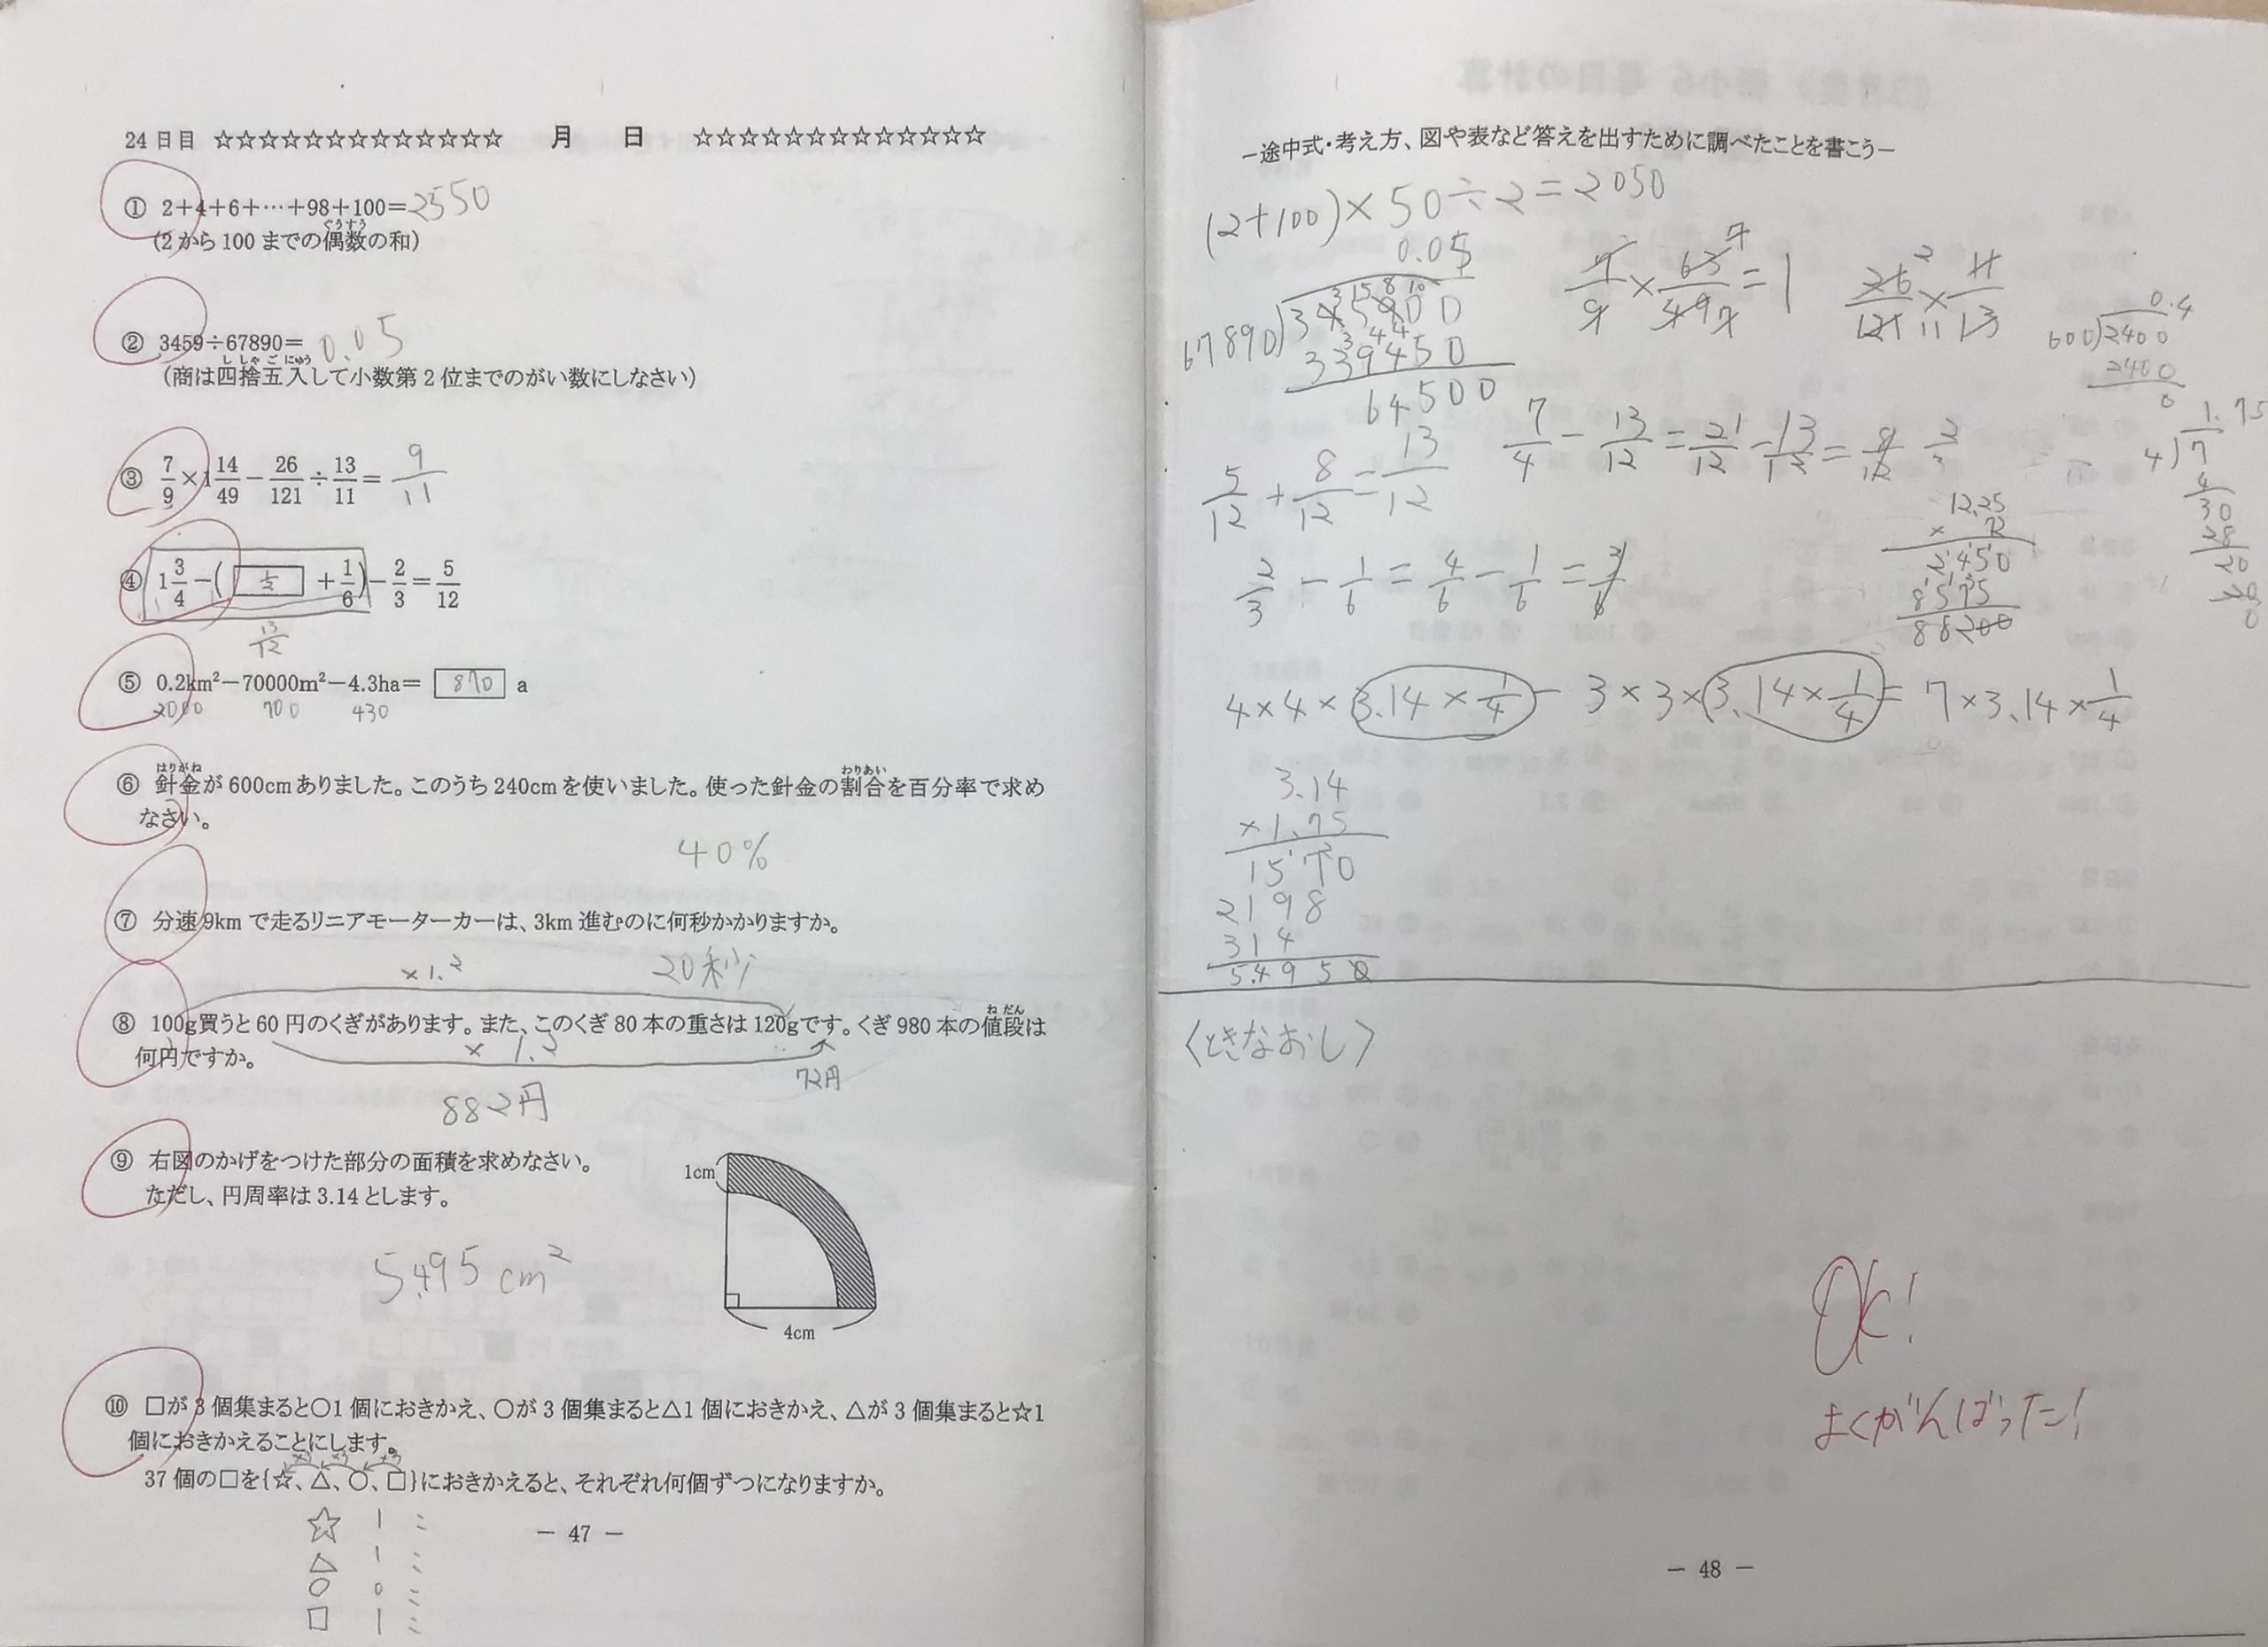 24日目 ☆☆☆☆☆☆☆☆☆☆☆☆☆ 月 日 ☆☆☆☆☆☆☆☆☆☆☆☆☆
① 2+4+6+…+98+100=2550
ぐうすう
(2から100までの偶数の和)
② 3459÷67890= 0.05
ししゃごにゅう
(商は四捨五入して小数第2位までのがい数にしなさい)
③ 7/9×1 14/49−26/121÷13/11= 9/11
④ 1 3/4−( 1/2 +1/6)−2/3=5/12
13/12
⑤ 0.2km²−70000m²−4.3ha= 870 a
2000 700 430
はりがね わりあい
⑥ 針金が600cmありました。このうち240cmを使いました。使った針金の割合を百分率で求め
なさい。
40%
⑦ 分速9kmで走るリニアモーターカーは、3km進むのに何秒かかりますか。
×1.2 20秒
ねだん
⑧ 100g買うと60円のくぎがあります。また、このくぎ80本の重さは120gです。くぎ980本の値段は
何円ですか。
× 1.2
72円
882円
⑨ 右図のかげをつけた部分の面積を求めなさい。
ただし、円周率は3.14とします。
1cm
5.495 cm²
4cm
⑩ □が3個集まると○1個におきかえ、○が3個集まると△1個におきかえ、△が3個集まると☆1
個におきかえることにします。
37個の□を{☆、△、○、□}におきかえると、それぞれ何個ずつになりますか。
☆ 1 こ
△ 1 こ
○ 0 こ
□ 1 こ
− 47 −
−途中式・考え方、図や表など答えを出すために調べたことを書こう−
(2+100)×50÷2=2050
0.05
67890)345900
339450
64500
7/9×63/49=1
26/121×11/13
0.4
600)2400
2400
0
5/12+8/12=13/12
7/4−13/12=21/12−13/12=8/12 2/3
1.75
4)7
4
30
28
20
20
0
2/3−1/6=4/6−1/6=3/6
12.25
× 72
2450
8575
88200
4×4×3.14×1/4−3×3×3.14×1/4=7×3.14×1/4
3.14
×1.75
1570
2198
314
5.4950
〈ときなおし〉
OK!
よくがんばった!
− 48 −